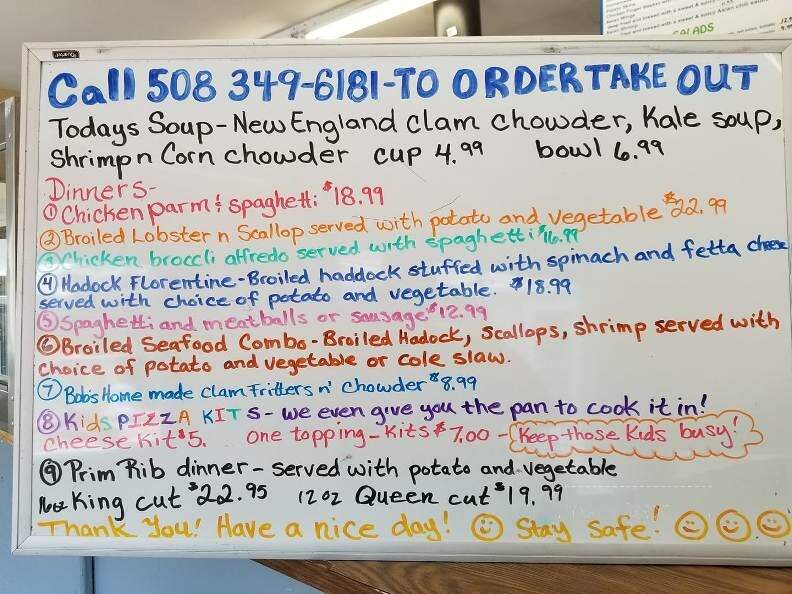 Call 508 349-6181-TO ORDER TAKE OUT
Todays Soup-New England clam chowder, Kale soup,
Shrimp n Corn chowder cup 4.99 bowl 6.99
Dinners-
① Chicken parm & spaghetti $18.99
② Broiled Lobster n Scallop served with potato and vegetable $22.99
③ Chicken broccli alfredo served with spaghetti $16.99
④ Hadock Florentine-Broiled haddock stuffed with spinach and fetta cheese
served with choice of potato and vegetable. $18.99
⑤ Spaghetti and meatballs or sausage $12.99
⑥ Broiled Seafood Combo-Broiled Hadock, scallops, shrimp served with
choice of potato and vegetable or cole slaw.
⑦ Bob's Home made clam Fritters n' chowder $8.99
⑧ Kids PIZZA KITS- we even give you the pan to cook it in!
Cheese Kit $5. one topping-Kits $7.00 - Keep those Kids busy!
⑨ Prim Rib dinner- served with potato and vegetable
16oz King cut $22.95 12oz Queen cut $19.99
Thank You! Have a nice day! Stay safe!
SALADS